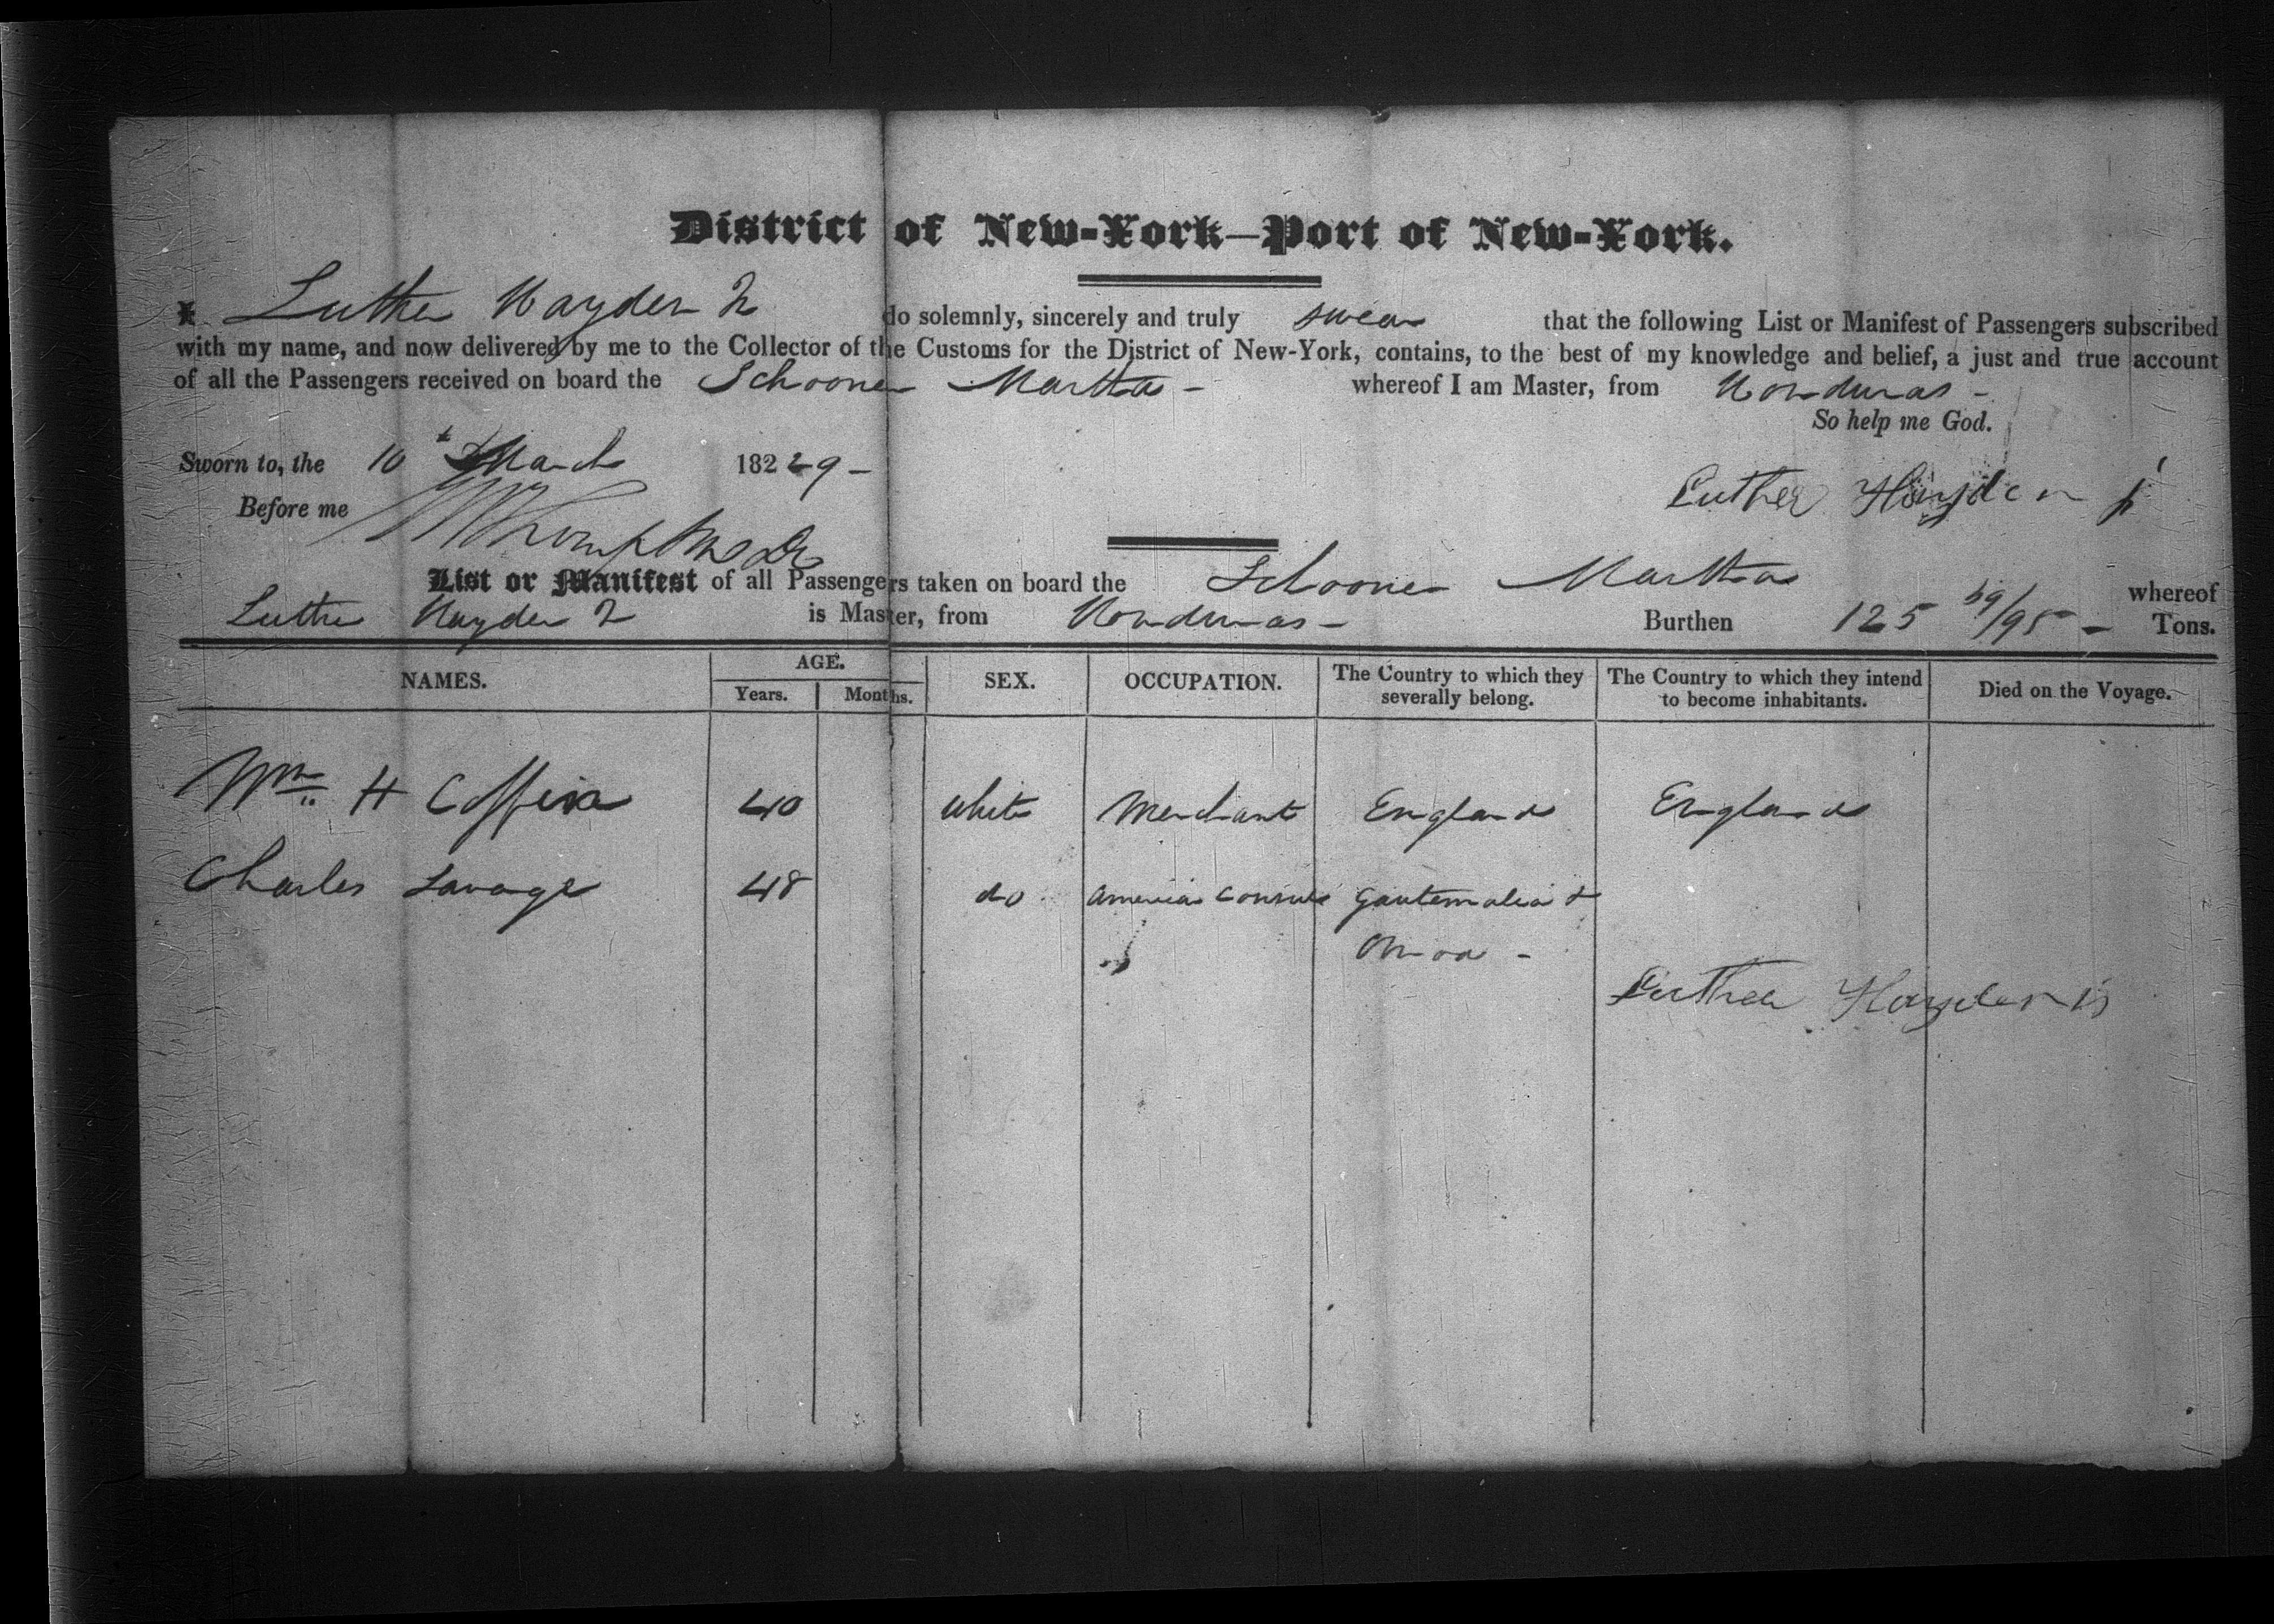 District of New-York—Port of New-York.
I Luther Hayden Jr do solemnly, sincerely and truly swear that the following List or Manifest of Passengers subscribed
with my name, and now delivered by me to the Collector of the Customs for the District of New-York, contains, to the best of my knowledge and belief, a just and true account
of all the Passengers received on board the Schooner Martha - whereof I am Master, from Honduras -
So help me God.
Sworn to, the 10 March 182 29 -
Before me
Luther Hayden jr
List or Manifest of all Passengers taken on board the Schooner Martha whereof
Luther Hayden Jr is Master, from Honduras - Burthen 125 59/95 - Tons.
NAMES. AGE. SEX. OCCUPATION. The Country to which they severally belong. The Country to which they intend to become inhabitants. Died on the Voyage.
Years. Months.
Wm H Coffin 40 White Merchant England England
Charles Savage 48 do American Consul Gautemalia &
Omoa -
Luther Hayden jr